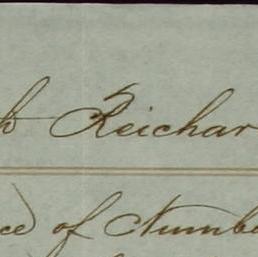 h Reichar
ce of Numbe